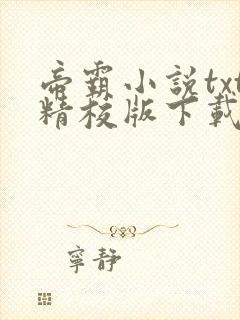 帝霸小說txt
精校版下載
寧靜